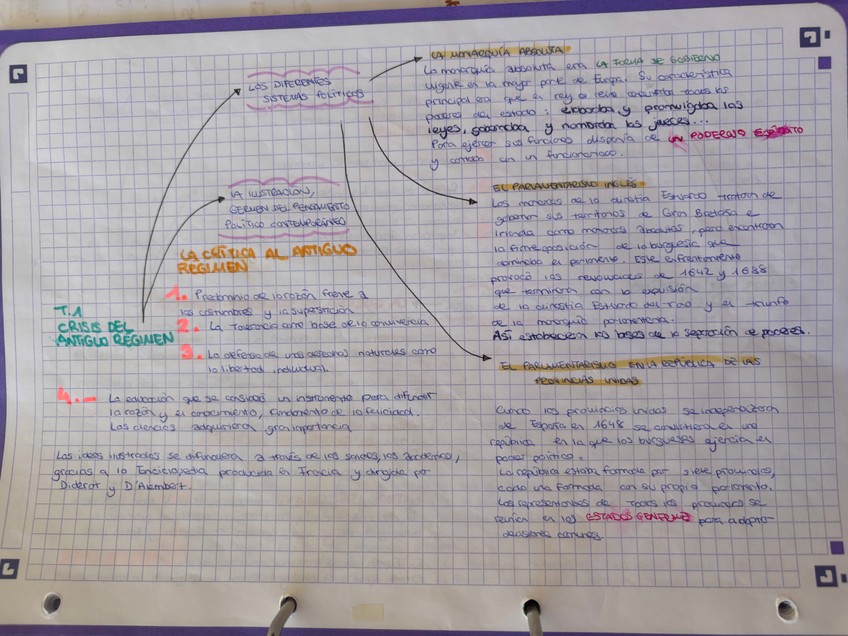 LOS DIFERENTES
SISTEMAS POLÍTICOS
LA MONARQUÍA ABSOLUTA
La monarquía absoluta era LA FORMA DE GOBIERNO
vigente en la mayor parte de Europa. Su característica
principal era que el rey o reina concentraba todos los
poderes del estado: elaboraba y promulgaba las
leyes, gobernaba y nombraba los jueces...
Para ejercer sus funciones disponía de UN PODEROSO EJÉRCITO
y contaba con un funcionariado.
LA ILUSTRACIÓN,
GERMEN DEL PENSAMIENTO
POLÍTICO CONTEMPORÁNEO
LA CRÍTICA AL ANTIGUO
RÉGIMEN
T.1
CRISIS DEL
ANTIGUO RÉGIMEN
1. Predominio de la razón frente a
las costumbres y la superstición
2. La Tolerancia como base de la convivencia
3. La defensa de unos derechos naturales como
la libertad individual.
4.- La educación que se consideró un instrumento para difundir
la razón y el conocimiento, fundamento de la felicidad.
Las ciencias adquirieron gran importancia
Las ideas ilustradas se difundieron a través de los salones, las academias,
gracias a la Enciclopedia producida en Francia y dirigida por
Diderot y D'Alembert.
EL PARLAMENTARISMO INGLÉS
Los monarcas de la dinastía Estuardo trataron de
gobernar sus territorios de Gran Bretaña e
Irlanda como monarcas absolutos, pero encontraron
la firme oposición de la burguesía que
dominaba el parlamento. Este enfrentamiento
provocó las revoluciones de 1642 y 1688
que terminaron con la expulsión
de la dinastía Estuardo del trono y el triunfo
de la monarquía parlamentaria.
Así establecieron las bases de la separación de poderes.
EL PARLAMENTARISMO EN LA REPÚBLICA DE LAS
PROVINCIAS UNIDAS
Cuando las provincias unidas se independizaron
de España en 1648 se constituyeron en una
república en la que los burgueses ejercían el
poder político.
La república estaba formada por siete provincias,
cada una formada con su propio parlamento.
Los representantes de todas las provincias se
reunían en los ESTADOS GENERALES para adoptar
decisiones comunes